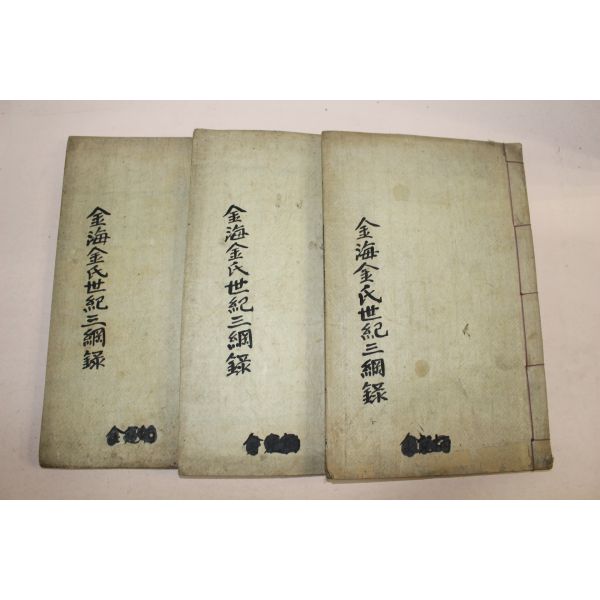 金海金氏世紀三綱錄
金海金氏世紀三綱錄
金海金氏世紀三綱錄